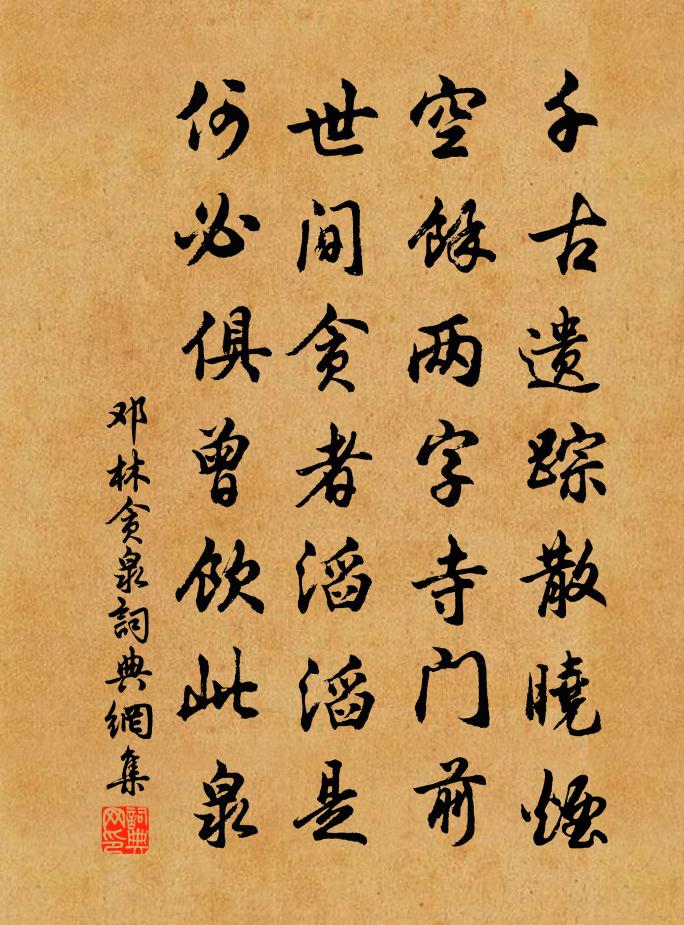 千古遗踪散曉煙
空餘两字寺门前
世间贪者滔滔是
何必俱曾飲此泉
邓林贪泉詞典網集
詞典网印